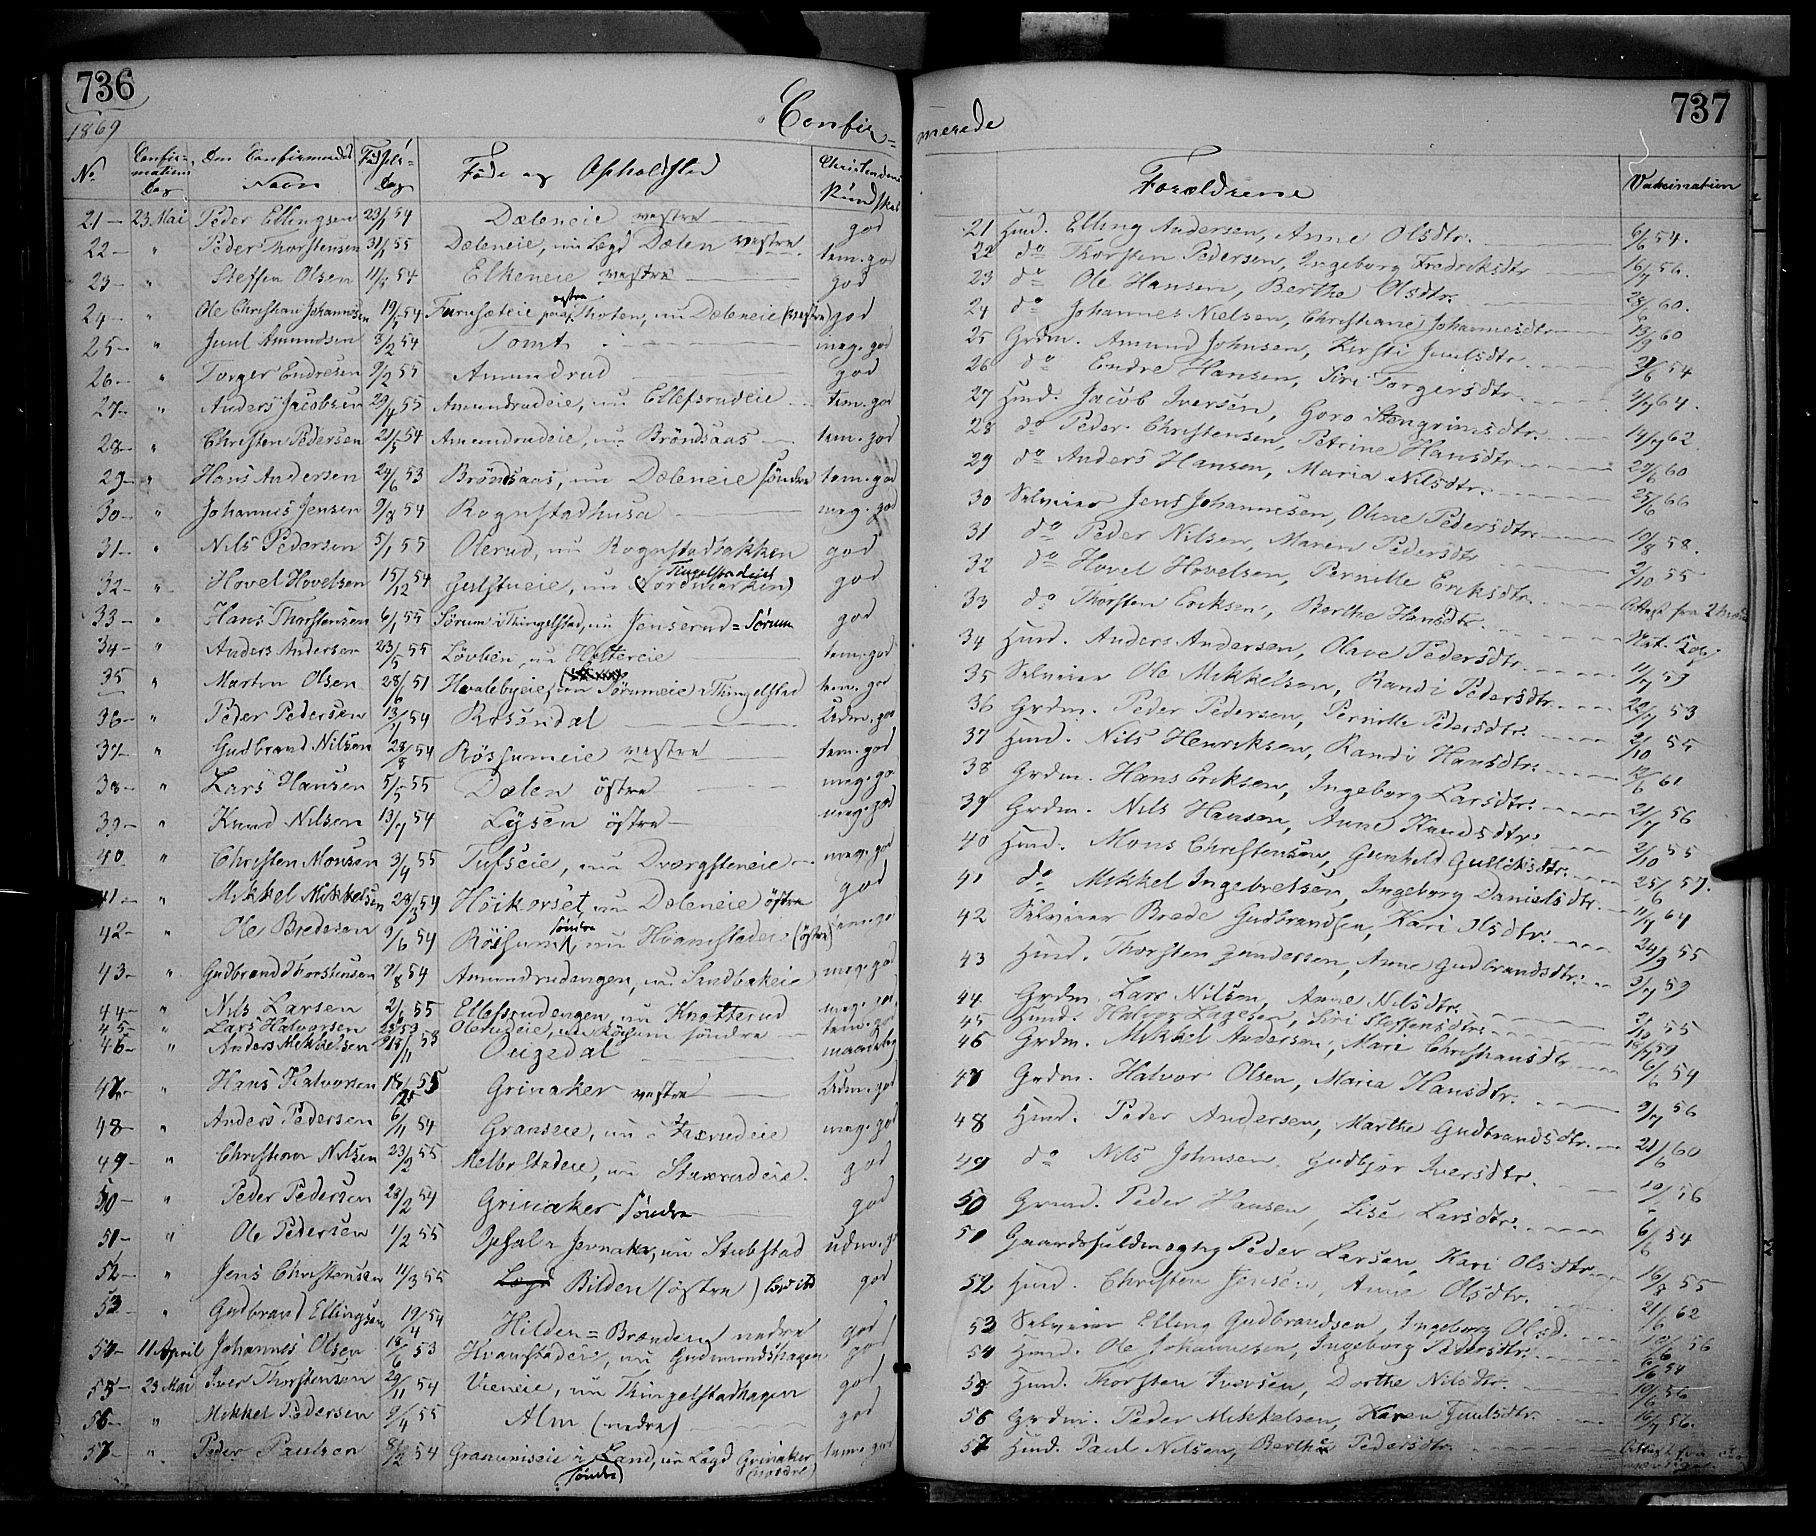 736
1869
Confir=
No
Confir=mations Dag
Den Confirmeredes Navn
Fødsels=Dag
Føde og Opholdsted
Christendoms Kundskab
21 - 23 Mai Peder Ellingsen 23/1 54 Dæleneie vestre god
22 - " Peder Thorstensen 31/1 55 Dæleneie, nu Logd Dælen vestre tem. god
23 - " Steffen Olsen 54 Elkeneie vestre god
24 - " Ole Christian Johannesen 54 Furusæteie østre Thoten, nu Dæleneie (vestre) god
25 - " Juul Amundsen 3/2 54 Tomt meg. god
26 - " Torger Endresen 9/2 55 Amundrud god
27 - " Anders Jacobsen 29/4 55 Amundrudeie, nu Ellefsrudeie tem. god
28 - " Christen Pedersen 21/5 54 Amundrudeie, nu Bröndsaas tem. god
29 - " Hans Andersen 24/6 53 Bröndsaas, nu Dæleneie söndre tem. god
30 - " Johannes Jensen 9/8 54 Rognstadhusa meg. god
31 - " Nils Pedersen 5/1 55 Olerud, nu Rognstadbakken god
32 - " Hovel Hovelsen 15/12 54 Gulstueie, nu Tingelstadeie (Nordmarken) god
33 - " Hans Thorstensen 6/1 55 Sörum i Thingelstad, nu Jenserud = Sörum god
34 - " Anders Andersen 23/5 55 Lövben, nu Holtereie tem. god
35 " Marten Olsen 28/6 51 Hvalebyeie, nu Sörumeie i Thingelstad tem. god
36 - " Peder Pedersen 13/1 54 Rosendal Udm. god
37 - " Gudbrand Nilsen 28/8 54 Rössumeie vestre tem. god
38 - " Lars Hansen 5/5 55 Dælen östre meg. god
39 - " Knud Nilsen 13/7 54 Lysen östre meg. god
40 " Christen Monsen 3/4 55 Tufseie, nu Dvergsteneie meg. god
41 - " Mikkel Mikkelsen 23/3 54 Höikorset, nu Dæleneie östre god
42 - " Ole Bredesen 9/6 54 Rössum söndre, nu Hvamstadeie (östre) tem. go
43 - " Gudbrand Thorstensen 7/8 54 Amundrudengen, nu Sandbakeie meg. god
44 - " Nils Larsen 2/6 55 Ellefsrudengen, nu Knotterud meg. god
45 - " Lars Halvorsen 53 Olerudeie, nu Rösum söndre tem. god
46 - " Anders Mikkelsen /11 53 Ougedal maadelig
47 - " Hans Halvorsen 18/2 55 Grinaker vestre Udm. god
48 - " Anders Pedersen 6/11 54 Granseie, nu Saxrudeie meg. god
49 - " Christian Nilsen 23/2 55 Melbostadeie, nu Staxrudeie. god
50 - " Peder Pedersen 28/2 54 Grinaker söndre god
51 - " Ole Pedersen 1/2 55 Opsal i Jevnaker, nu Stubstad udm. g
52 - " Jens Christensen 11/3 55 Bilden (östre) god
53 - " Gudbrand Ellingsen 19/4 54 Hilden = Branden nedre god
54 - 11 April Johannes Olsen 18/6 53 Hvamstadeie, nu Gudmundshagen god
55 - 23 Mai Iver Thorstensen 29/11 54 Vieneie, nu Thingelstadhagen god
56 - " Mikkel Pedersen 9/4 55 Alm (nedre) god
57 - " Peder Paulsen 8/2 54 Granumseie i (söndre) Land, nu Logd Grinaker (nordre) tem. god
737
merede
Forældrene
Vaksination
21 Husm. Elling Andersen, Anne Olsdtr. 6/6 54.
22 do Thorsten Pedersen, Ingeborg Fredriksdtr 16/7 56.
23 do Ole Hansen, Berthe Olsdtr. 60.
24 do Johannes Nielsen, Christiane Johannesdtr. 13/9 60
25 Grdm. Amund Johnsen, Kersti Juulsdtr. 54
26 do Endre Hansen, Siri Torgersdtr. 64.
27 Husm. Jacob Iversen, Goro Stengrimsdtr. 14/7 62
28 do Peder Christensen, Petrine Hansdtr. 27/6 60
29 do Anders Hansen, Maria Nilsdtr. 25/6 66
30 Selveier Jens Johannesen, Oline Pedersdtr. 19/8 58.
31 do Peder Nilsen, Maren Pedersdtr 2/10 55
32 do Hovel Hovelsen, Pernille Eriksdtr.
33 do Thorsten Eriksen, Berthe Hansdtr.
34 Husm. Anders Andersen, Olave Pedersdtr. 11/7 59
35 Selveier Ole Mikkelsen, Randi Pedersdtr. 22/7 53
36 Grdm. Peder Pedersen, Pernille Pedersdtr. 2/10 55
37 Husm. Nils Henriksen, Randi Hansdtr. 12/6 61
38 Grdm. Hans Eriksen, Ingeborg Larsdtr. 21/7 56
39 Grdm. Nils Hansen, Anne Knudsdtr. 2/10 55
40 Husm. Mons Christensen, Gunhild Gulliksdtr. 25/6 57.
41 do Mikkel Ingebretsen, Ingeborg Danielsdtr. 11/7 64
42 Selveier Brede Gudbrandsen, Kari Olsdtr. 24/9 55
43 Husm. Thorsten Gundersen, Anne Gudbrandsdtr. 59
44 Grdm. Lars Nilsen, Anne Nilsdtr. 2/10 55
45 Husm. Halvor Lagesen, Siri Steffensdtr. 59
46 Grdm. Mikkel Andersen, Mari Christiansdtr 6/6 54
47 Grdm. Halvor Olsen, Maria Hansdtr. 9/7 56
48 Husm. Peder Andersen, Marthe Gudbrandsdtr. 21/6 60
49 do Nils Johnsen, Gudbjör Iversdtr. 56
50 Grmd. Peder Hansen, Lise Larsdtr. 6/6 54
51 Gaardsfuldmægtig Peder Larsen, Kari Olsdtr. 16/8 55
52 Husm. Christen Jensen, Anne Olsdtr. 21/6 62
53 Selveier Elling Gudbrandsen, Ingeborg Olsd. 56
54 Husm. Ole Johannesen, Ingeborg Pedersdtr. 6/6 54
55 Husm. Thorsten Iversen, Dorthe Nilsdtr. 19/6 56
56 Grdm. Peder Mikkelsen, Karen Juulsdtr. 16/7 56.
57 Husm. Paul Nilsen, Berthe Pedersdtr.